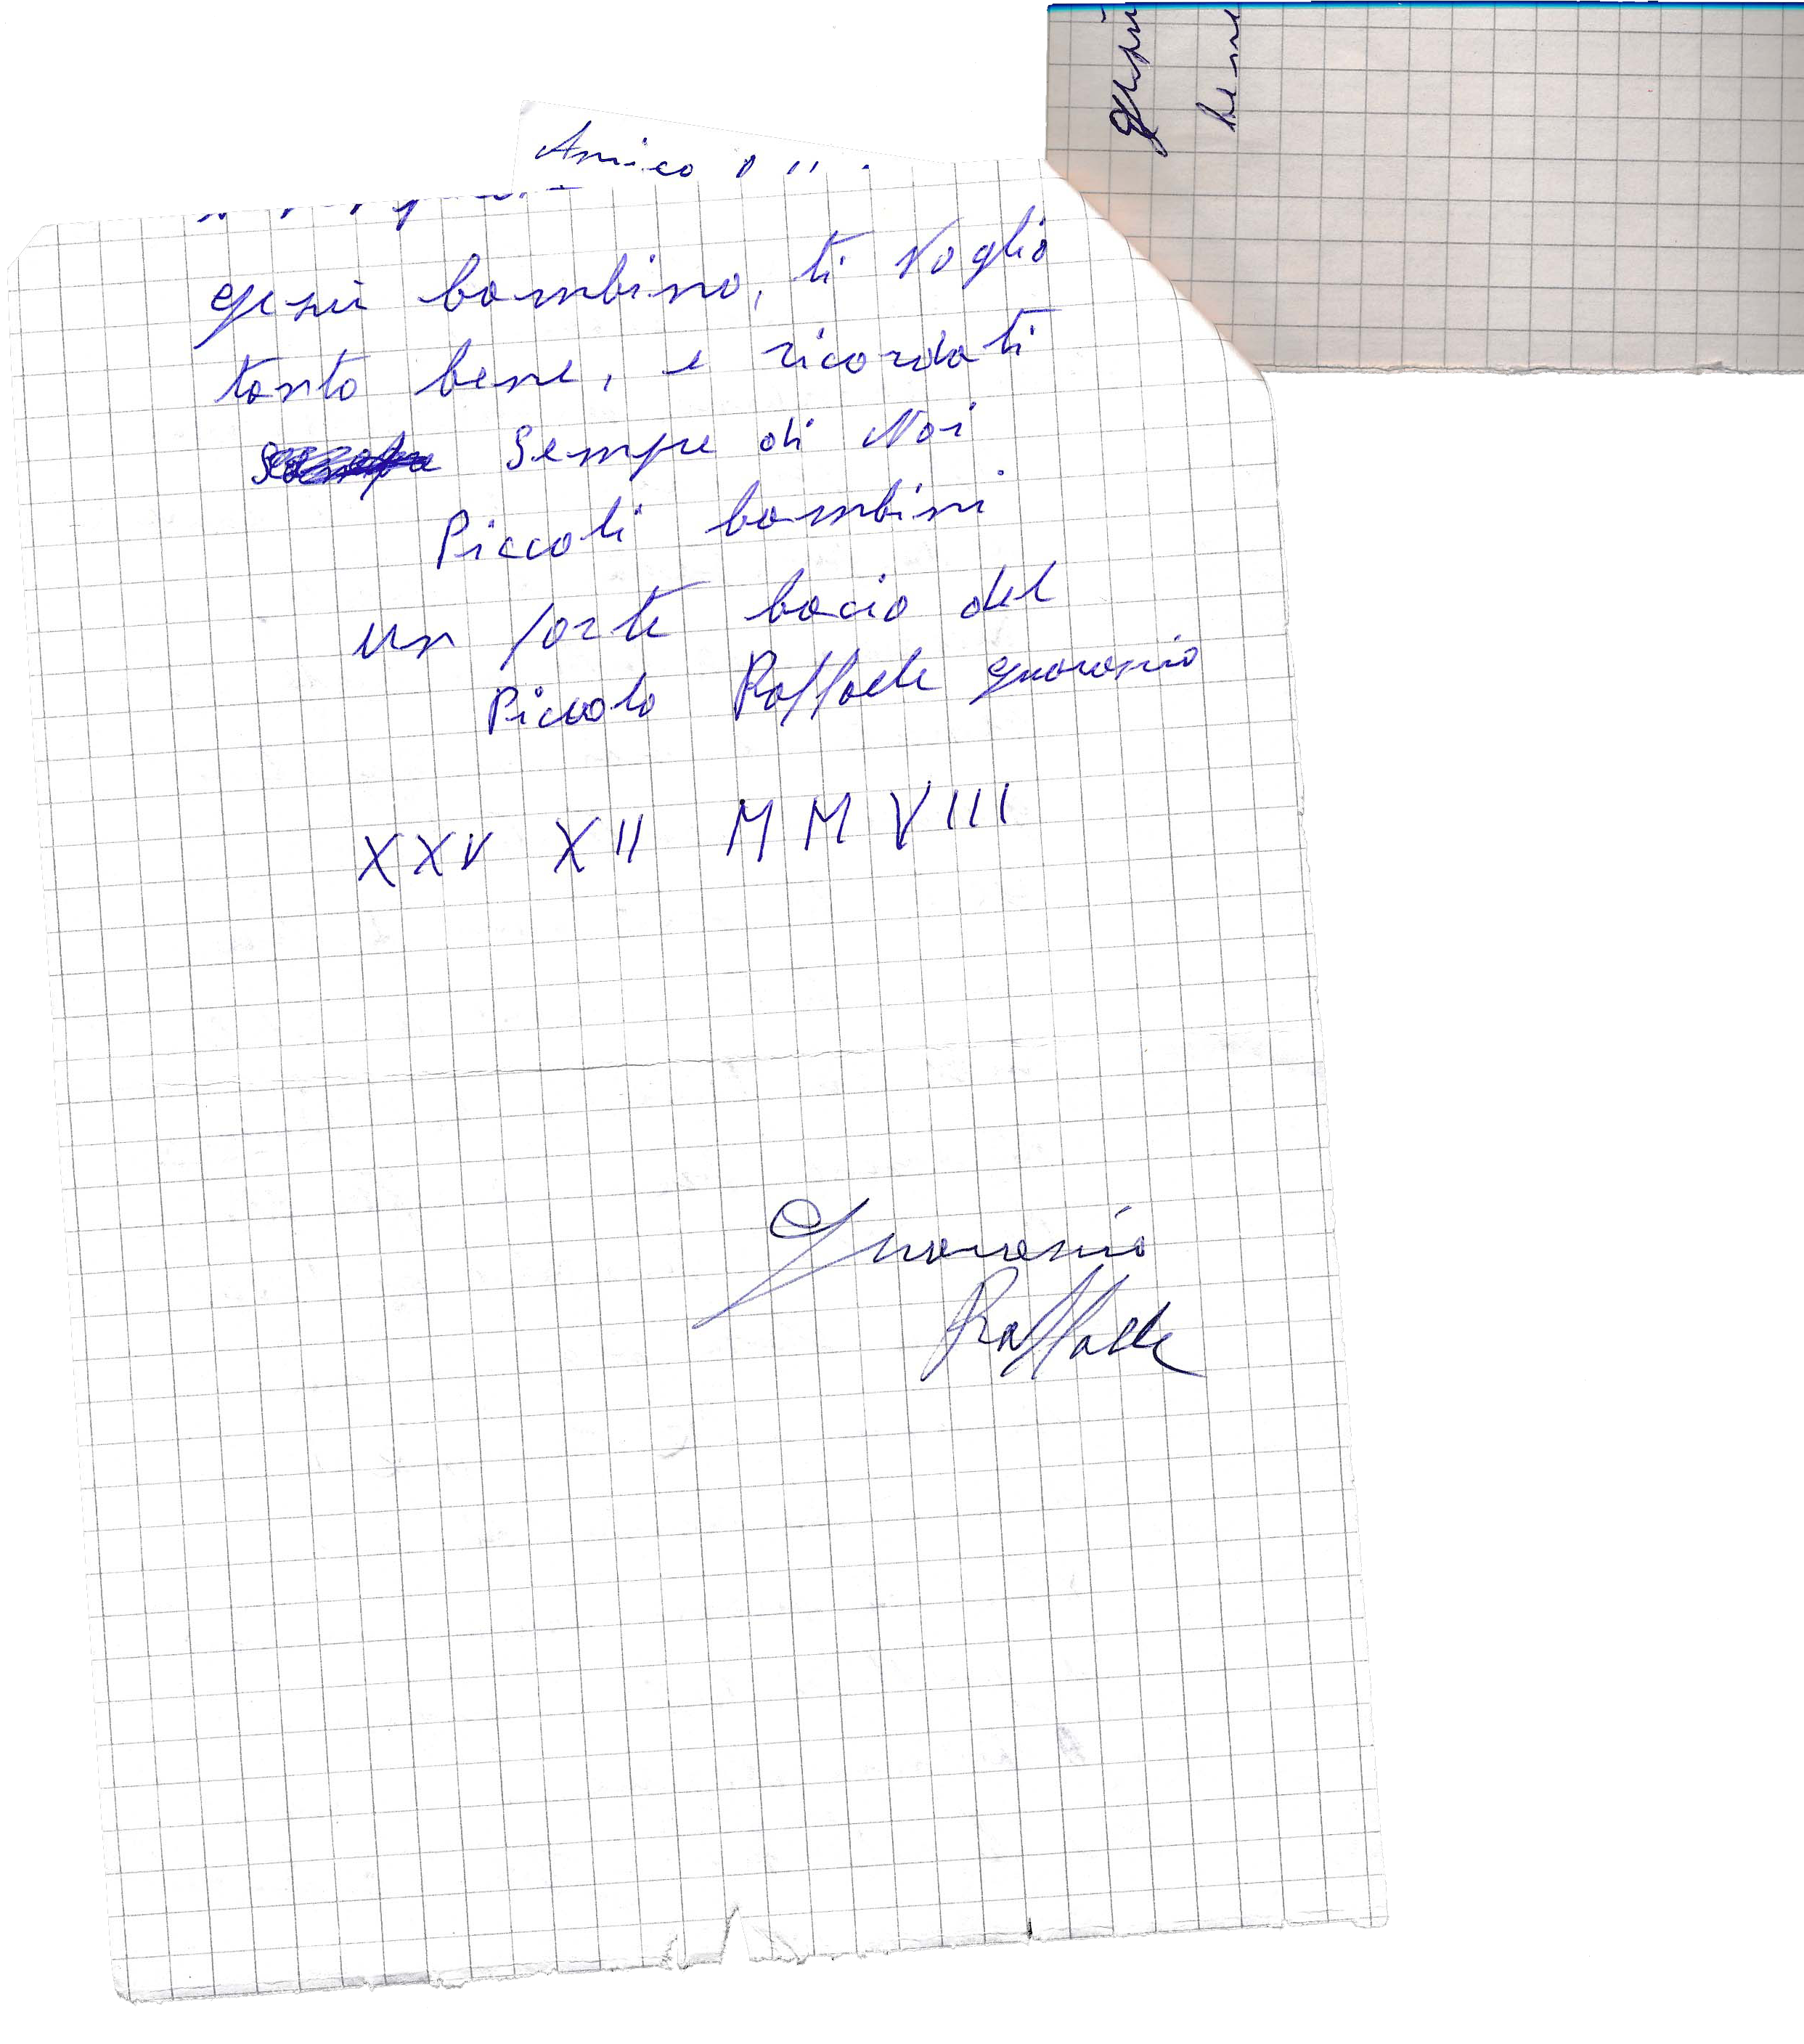 Amico
gesù bambino, ti voglio
tanto bene, e ricordati
sempre di Noi
Piccoli bambini
un forte bacio del
Piccolo Raffaele
XXV XII MMVIII
Raffaele